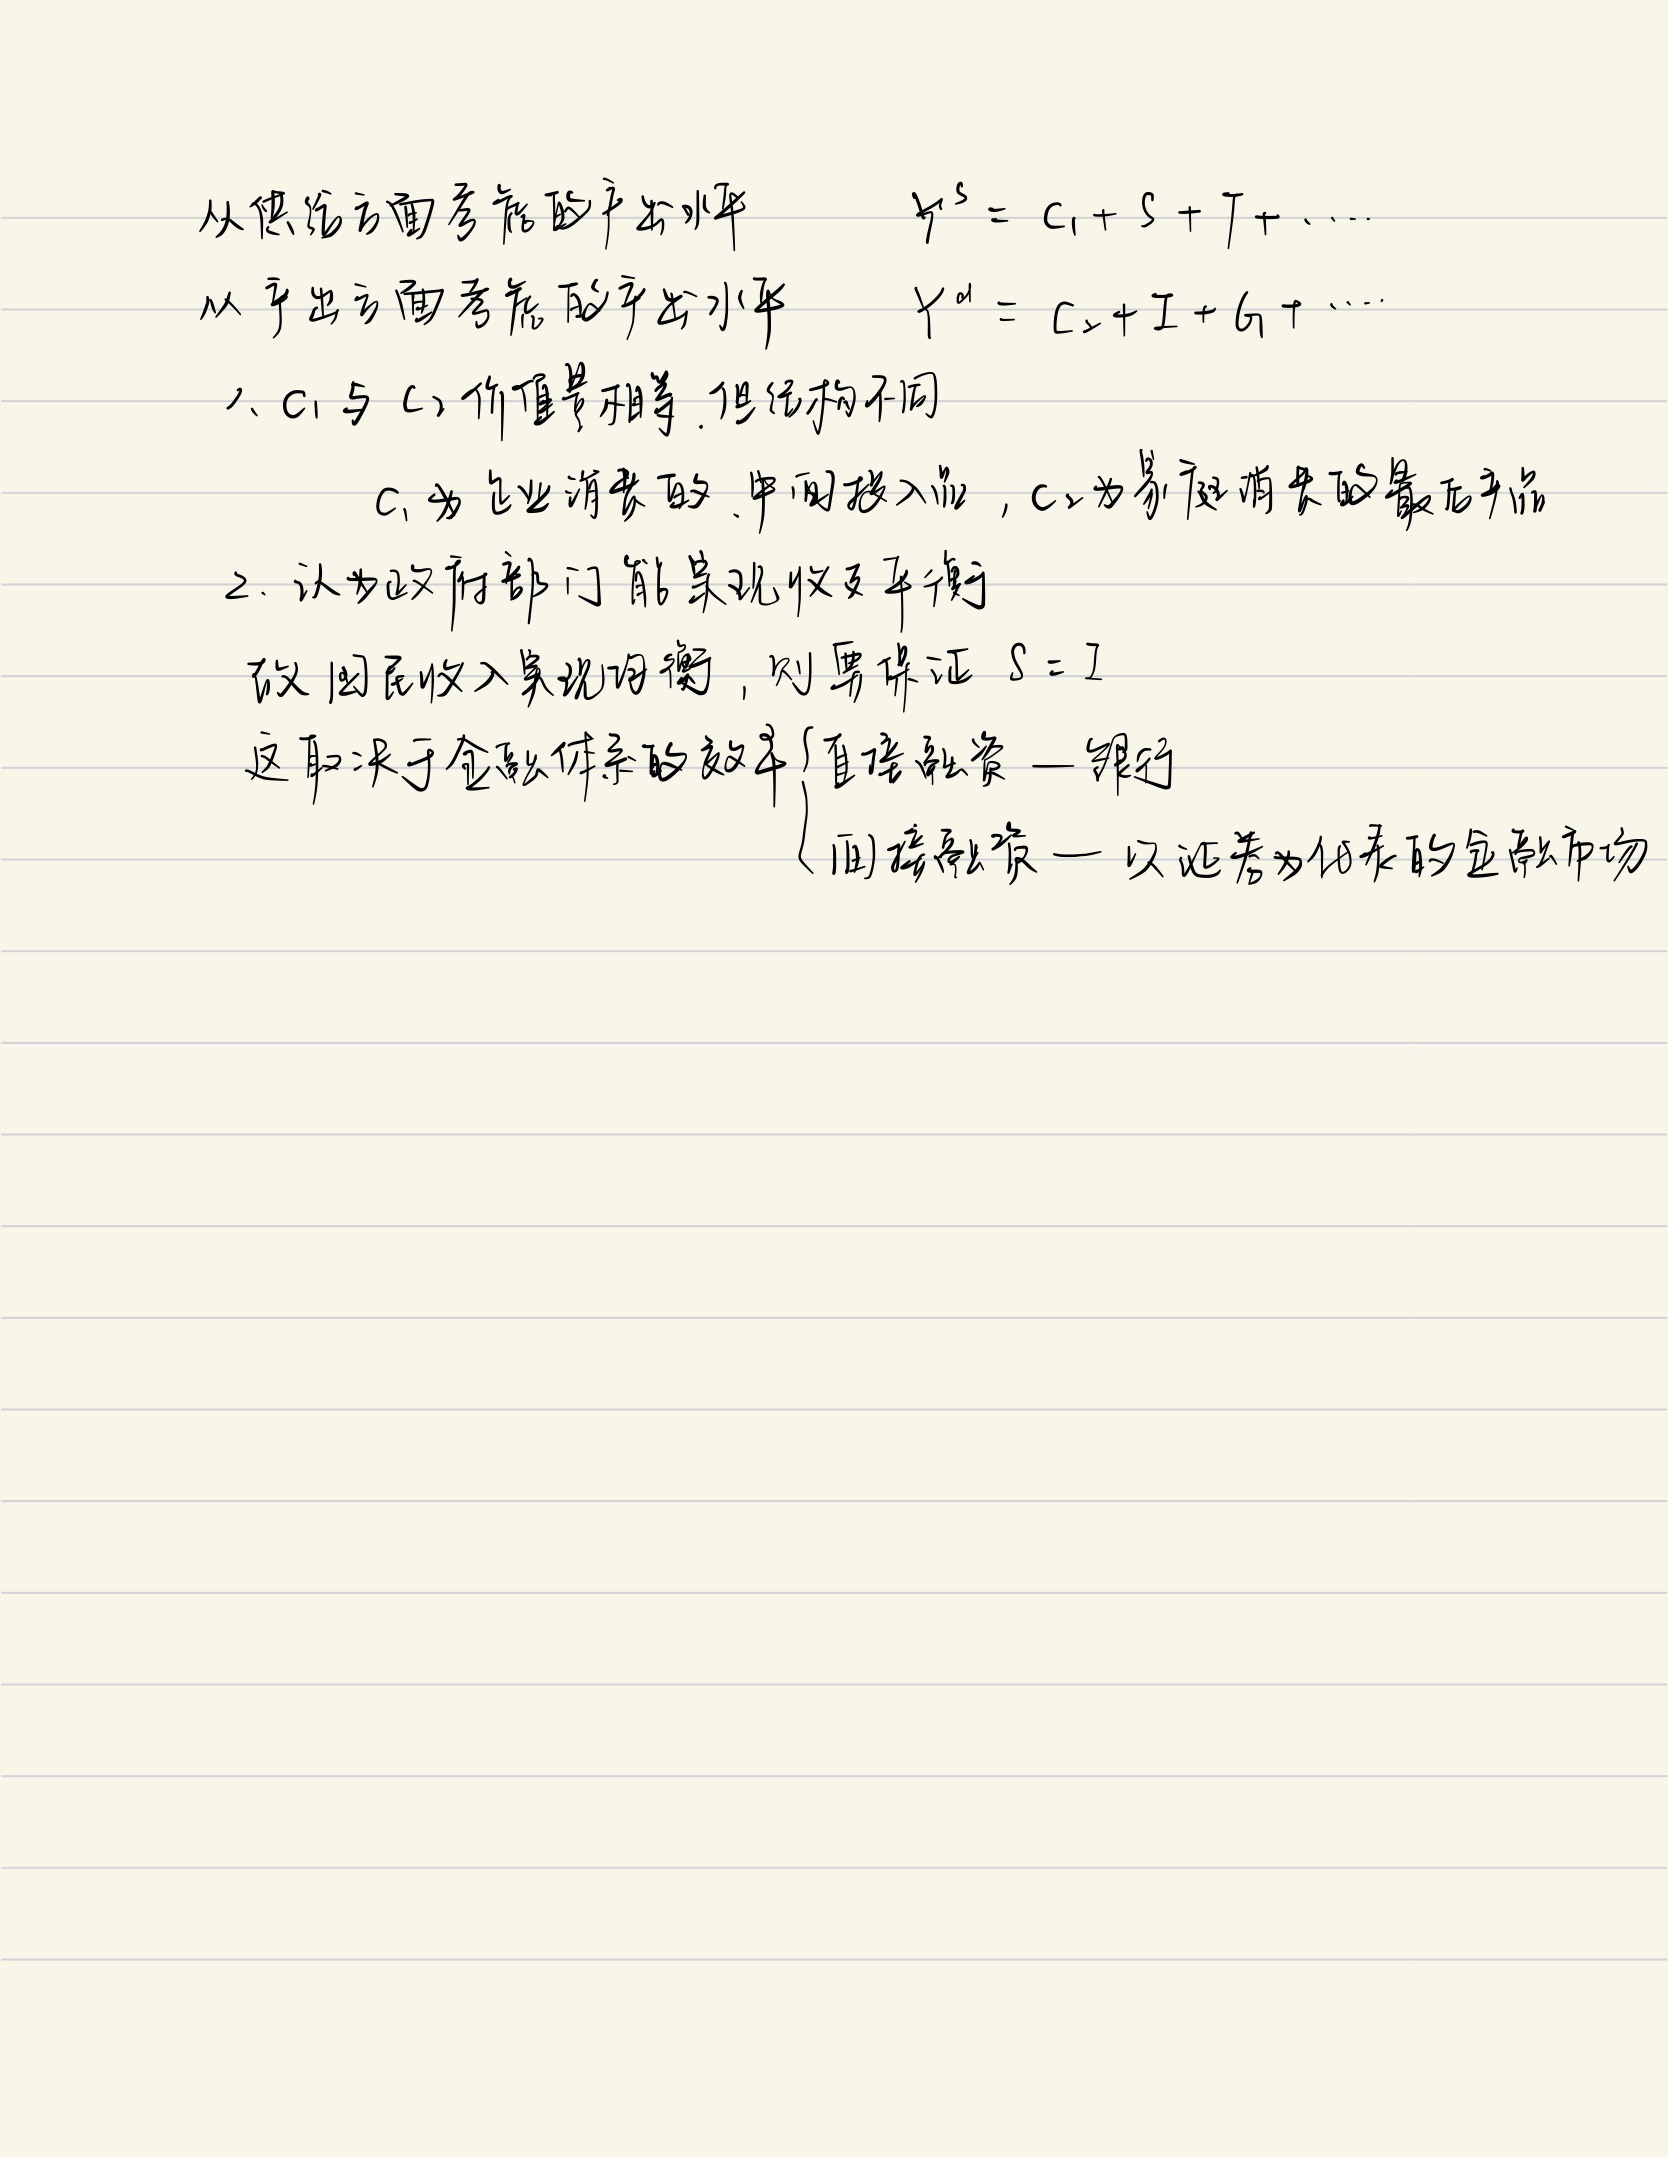 从供给方面考虑的产出水平 Y^s = C₁ + S + T + ·····
从产出方面考虑的产出水平 Y^d = C₂ + I + G + ·····
1. C₁与C₂价值量相等.但结构不同
C₁为企业消费的.中间投入品,C₂为家庭消费的最后产品
2. 认为政府部门能实现收支平衡
故国民收入实现均衡,则要保证 S = I
这取决于金融体系的效率{直接融资—银行
间接融资—以证券为代表的金融市场